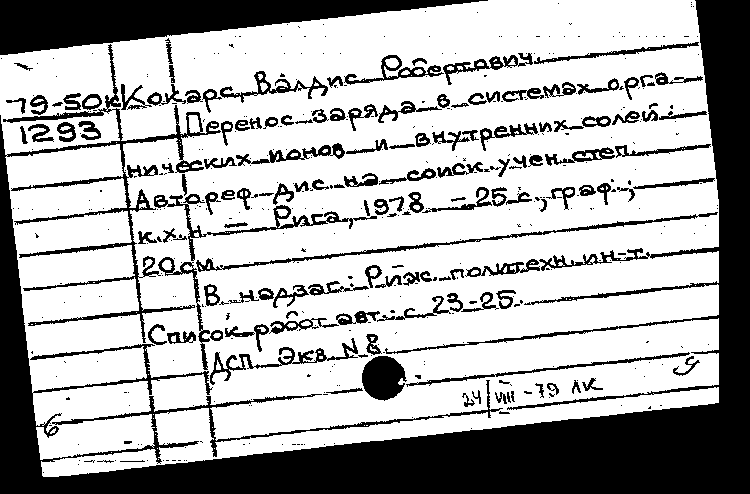 79-50к Кокарс, Валдис Робертович.
1293 Перенос заряда в системах орга-
нических ионов и внутренних солей:
Автореф. дис. на соиск. учен. степ.
к.х.н. — Рига, 1978. - 25 с., граф.;
20 см.
В надзаг.: Риж. политехн. ин-т.
Список работ авт.: с. 23-25.
ДСП. Экз. N 8.
24/VIII-79 ЛК
б